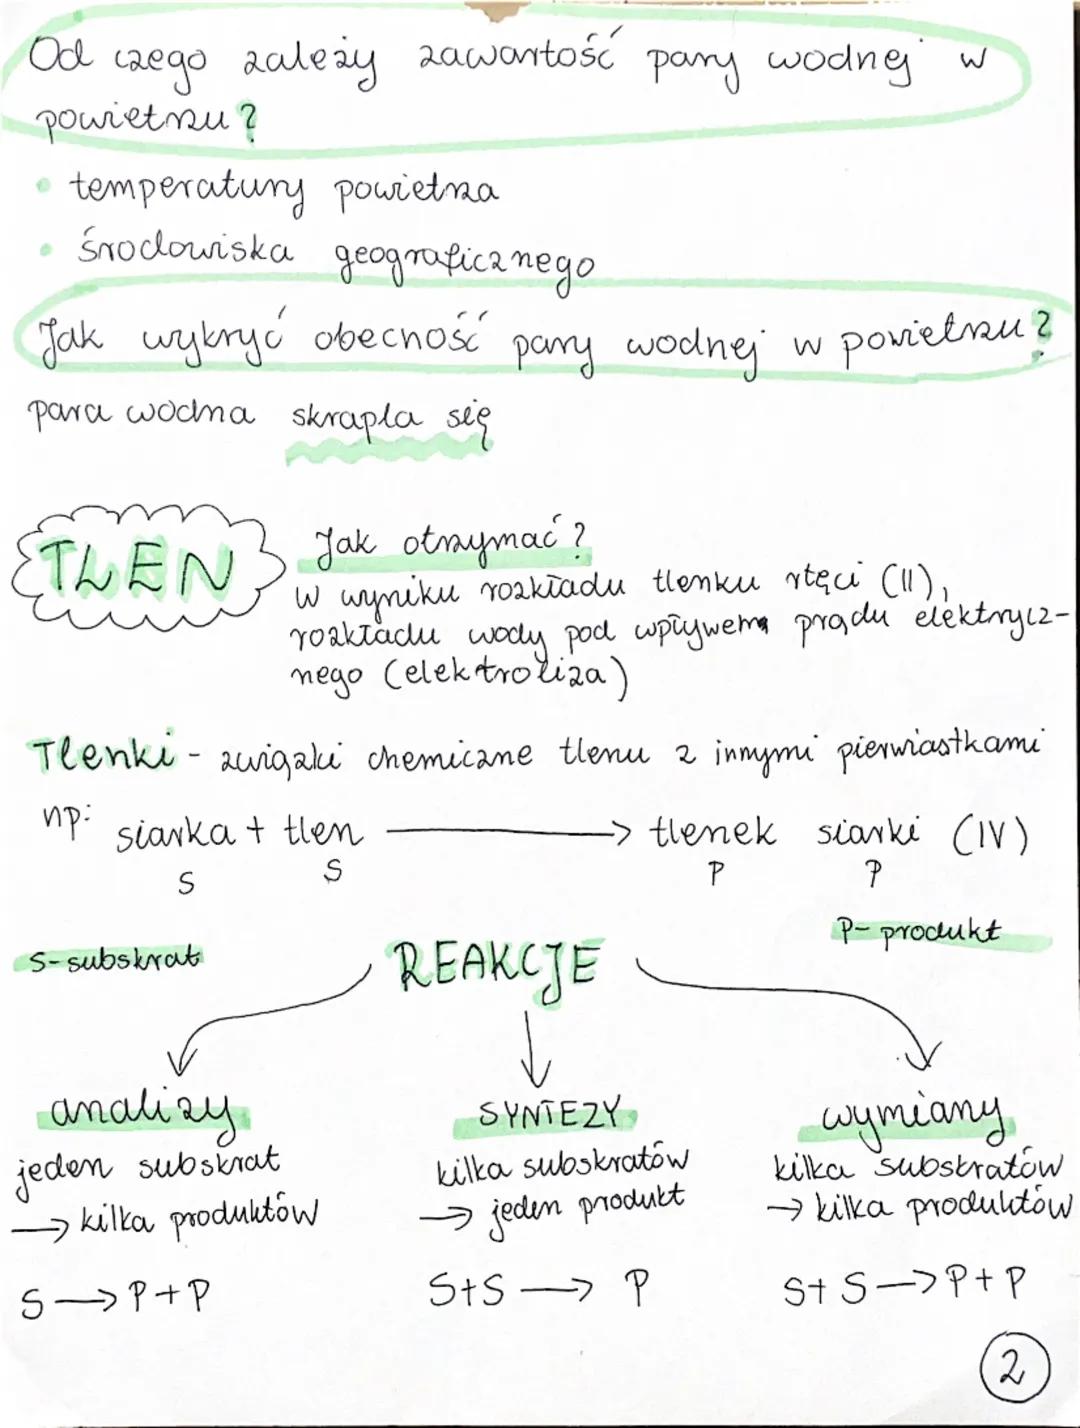 Od czego zależy zawartość pary wodnej w
powietrzu?
• temperatury powietrza
• środowiska geograficznego
Jak wykryć obecność pary wodnej w powietrzu?
para wodna skrapla się
TLEN
Jak otrzymać?
W wyniku rozkładu tlenku rtęci (II),
rozkładu wody pod wpływem prądu elektrycz-
nego (elektroliza)
Tlenki - związki chemiczne tlenu z innymi pierwiastkami
np:
siarka + tlen ⟶ tlenek siarki (IV)
S S P P
P- produkt
S- subskrat
REAKCJE
analizy SYNTEZY wymiany
jeden subskrat kilka subskratów kilka subskratów
→ kilka produktów → jeden produkt → kilka produktów
S → P + P S+S → P S+ S → P+ P
2